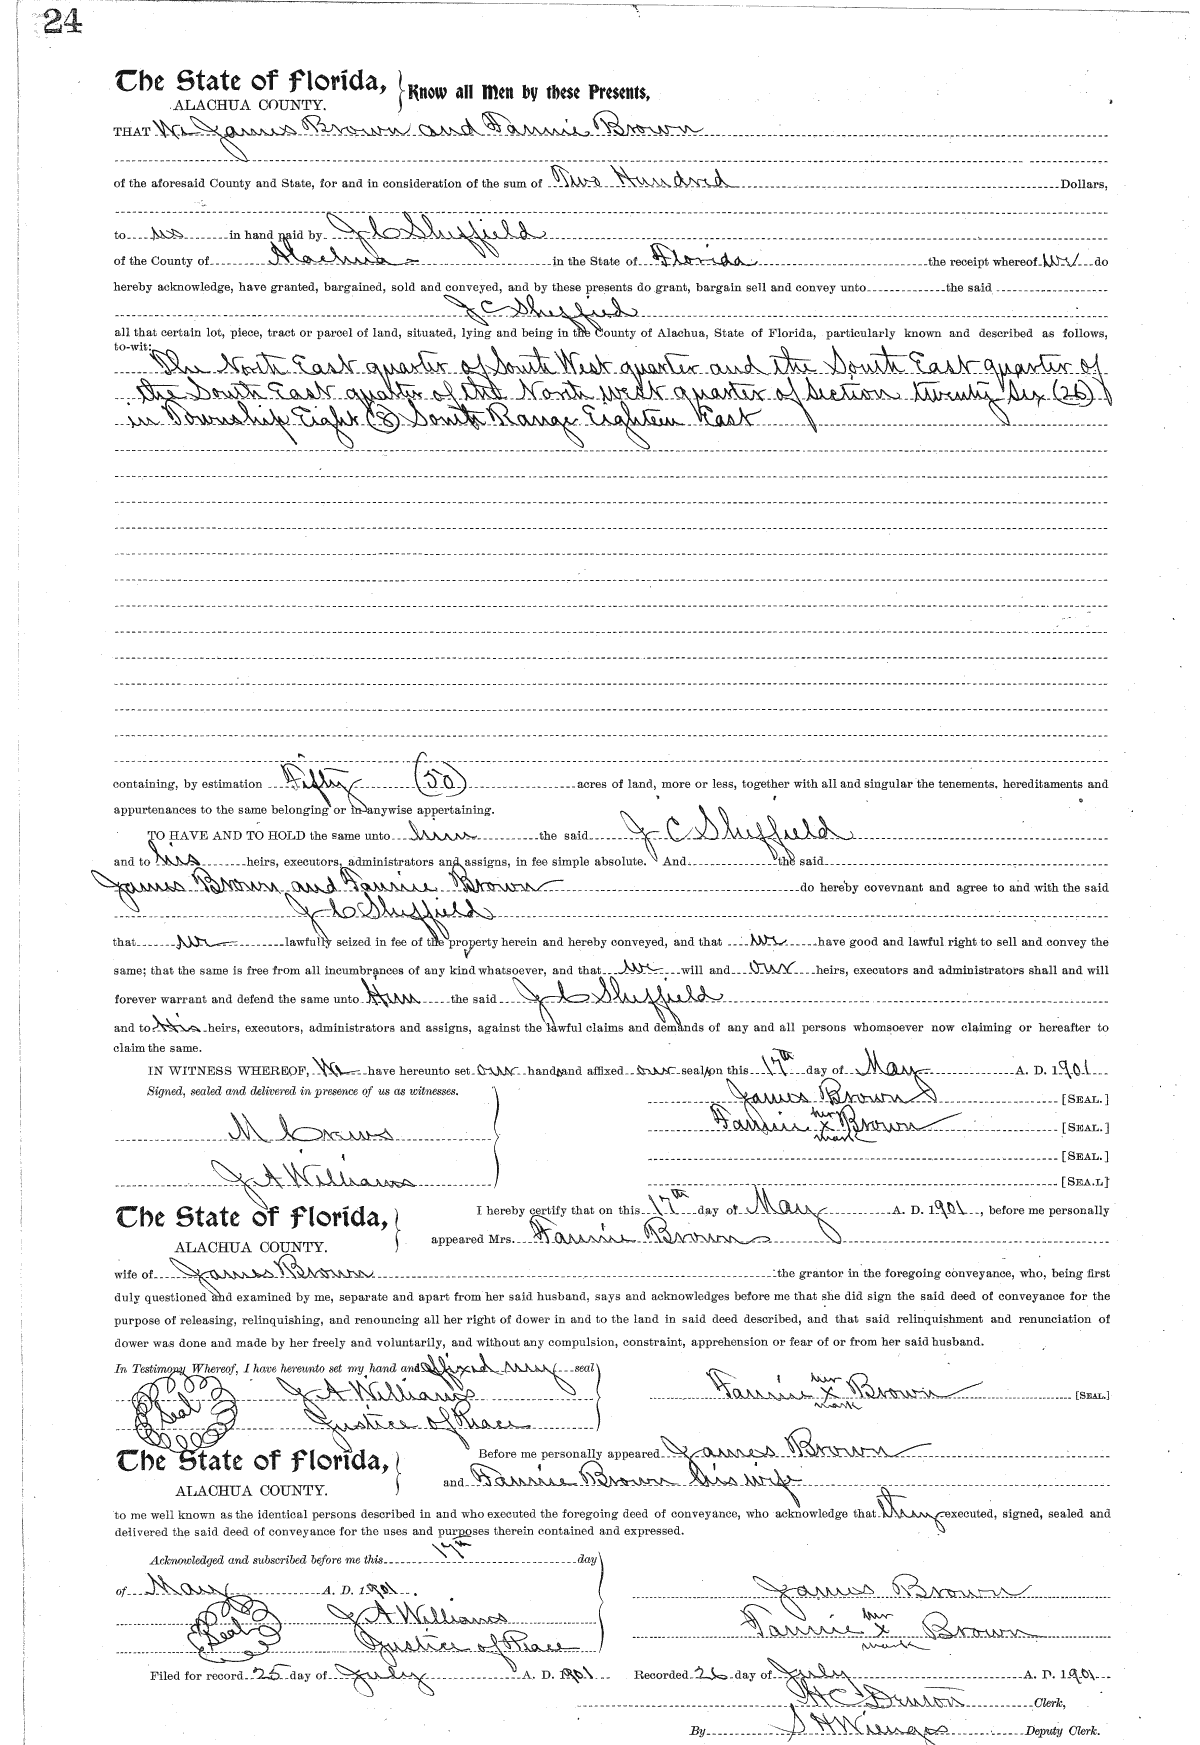 24
The State of Florida, Know all Men by these Presents,
ALACHUA COUNTY.
THAT We James Brown and Fannie Brown
of the aforesaid County and State, for and in consideration of the sum of Two Hundred Dollars,
to us in hand paid by J C Sheffield
of the County of Alachua in the State of Florida the receipt whereof We do
hereby acknowledge, have granted, bargained, sold and conveyed, and by these presents do grant, bargain sell and convey unto the said
J C Sheffied
all that certain lot, piece, tract or parcel of land, situated, lying and being in the County of Alachua, State of Florida, particularly known and described as follows,
to-wit:
The North East quarter of South West quarter and the South East quarter of
the South East quarter of the North West quarter of Section twenty Six (26)
in Township Eight (8) South Range Eighteen East
containing, by estimation Fifty (50) acres of land, more or less, together with all and singular the tenements, hereditaments and
appurtenances to the same belonging or in anywise appertaining.
TO HAVE AND TO HOLD the same unto him the said J C Sheffield
and to his heirs, executors, administrators and assigns, in fee simple absolute. And the said
James Brown and Fannie Brown do hereby covevnant and agree to and with the said
J C Sheffield
that we lawfully seized in fee of the property herein and hereby conveyed, and that we have good and lawful right to sell and convey the
same; that the same is free from all incumbrances of any kind whatsoever, and that we will and our heirs, executors and administrators shall and will
forever warrant and defend the same unto Him the said J C Sheffield
and to His heirs, executors, administrators and assigns, against the lawful claims and demands of any and all persons whomsoever now claiming or hereafter to
claim the same.
IN WITNESS WHEREOF, We have hereunto set our hands and affixed our seals on this 17th day of May A. D. 1901
Signed, sealed and delivered in presence of us as witnesses. James Brown [SEAL.]
M Crews Fannie her x mark Brown [SEAL.]
[SEAL.]
J A Williams [SEA.L]
The State of Florida, I hereby certify that on this 17th day of May A. D. 1901, before me personally
ALACHUA COUNTY. appeared Mrs. Fannie Brown
wife of James Brown the grantor in the foregoing conveyance, who, being first
duly questioned and examined by me, separate and apart from her said husband, says and acknowledges before me that she did sign the said deed of conveyance for the
purpose of releasing, relinquishing, and renouncing all her right of dower in and to the land in said deed described, and that said relinquishment and renunciation of
dower was done and made by her freely and voluntarily, and without any compulsion, constraint, apprehension or fear of or from her said husband.
In Testimony Whereof, I have hereunto set my hand and affixed my seal
Seal J A Williams Fannie her x mark Brown [SEAL.]
Justice of Peace
The State of Florida, Before me personally appeared James Brown
ALACHUA COUNTY. and Fannie Brown his wife
to me well known as the identical persons described in and who executed the foregoing deed of conveyance, who acknowledge that they executed, signed, sealed and
delivered the said deed of conveyance for the uses and purposes therein contained and expressed.
Acknowledged and subscribed before me this 17th day
of May A. D. 1901. James Brown
Seal J A Williams Fannie her x mark Brown
Justice of Peace
Filed for record 25 day of July A. D. 1901 Recorded 26 day of July A. D. 1901
H C Denton Clerk,
By S H Wienges Deputy Clerk.